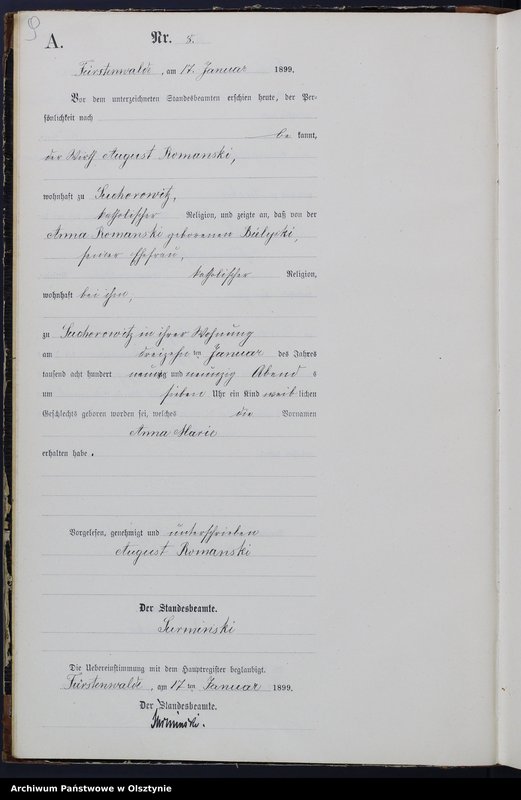 A. Nr. 8.
Fürstenwalde, am 17. Januar 1899.
Vor dem unterzeichneten Standesbeamten erschien heute, der Per-
sönlichkeit nach
be kannt,
der Wirth August Romanski,
wohnhaft zu Suchorowitz,
katholischer Religion, und zeigte an, daß von der
Anna Romanski geborenen
seiner Ehefrau,
katholischer Religion,
wohnhaft bei ihm,
zu Suchorowitz in ihrer Wohnung
am dreizehnten Januar des Jahres
tausend acht hundert neunzig und neunzig Abend s
um sieben Uhr ein Kind weib lichen
Geschlechts geboren worden sei, welches die Vornamen
Anna Marie
erhalten habe.
Vorgelesen, genehmigt und unterschrieben
August Romanski
Der Standesbeamte.
Surminski
Die Uebereinstimmung mit dem Hauptregister beglaubigt.
Fürstenwalde, am 17ten Januar 1899.
Der Standesbeamte.
Surminski.
Archiwum Państwowe w Olsztynie